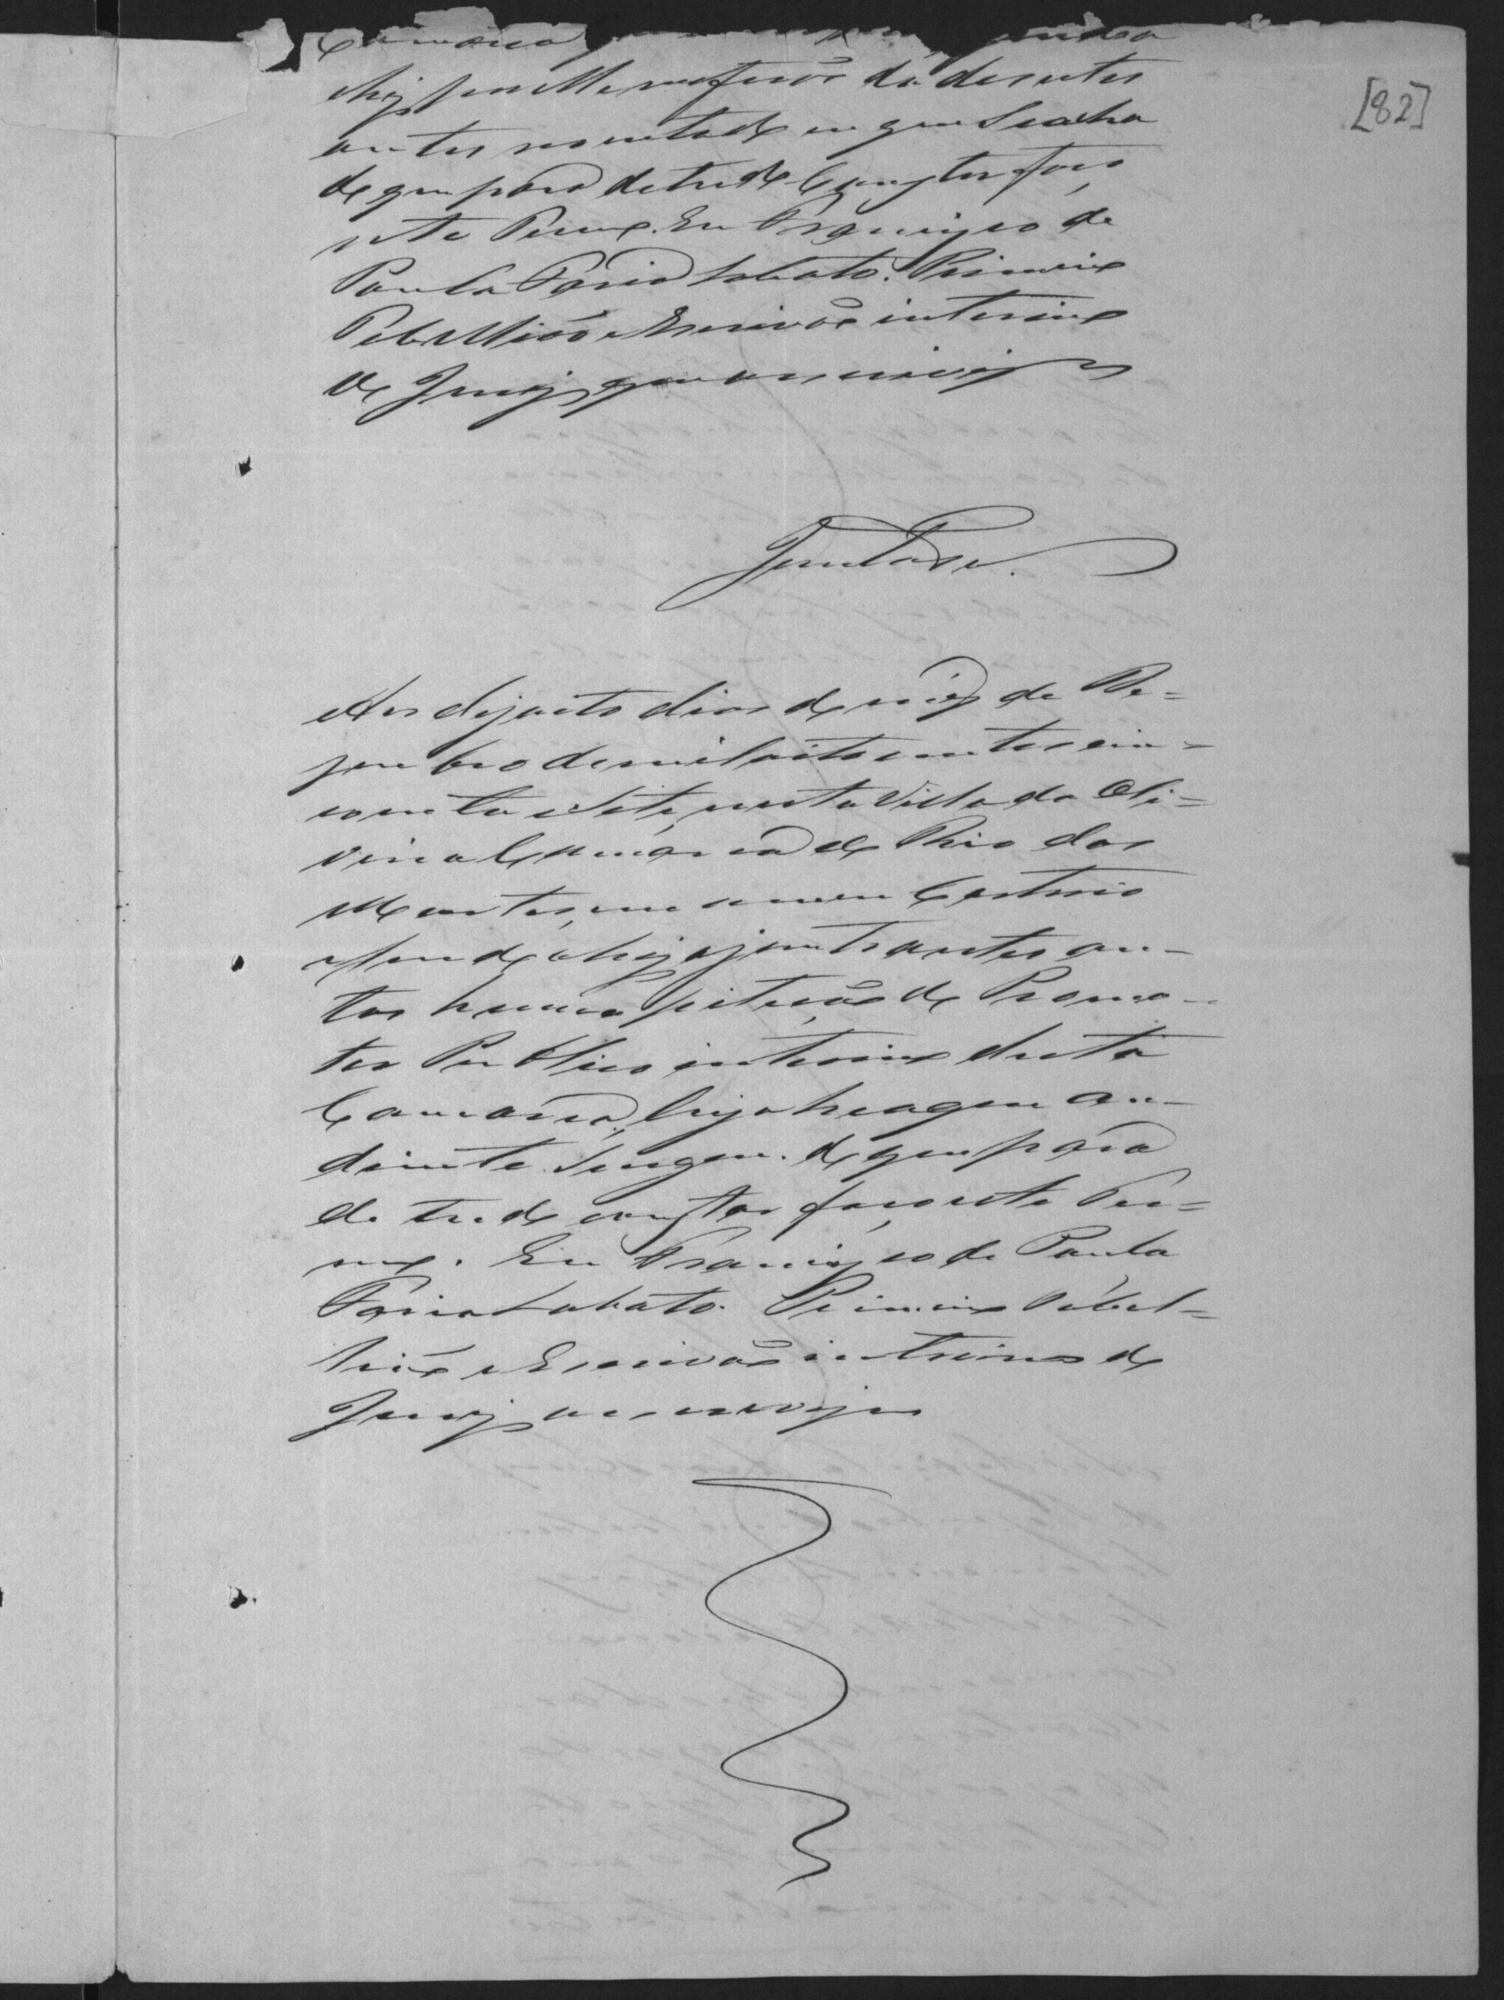 [82]
Comarca
antos no estado em que se acha
de que para de tudo Constar faço
este Termo. Eu Francisco de
Paula Faria Lobato. Primeiro
Tabellião e Escrivão interino
do Jury que o escrevy
Juntada.
Aos dezoito dias do mez de De=
zembro de mil oito centos cin=
coenta e Sete, nesta Villa da Oli=
veira Comarca do Rio das
Mortes, em o meu Cartorio
e sendo ahy ajunto a estes au-
tos huma petição do Promo-
tor Publico interino desta
Comarca, hé o que ao
diante Segue. de que para
de tudo constar faço este Ter=
mo. Eu Francisco de Paula
Faria Lobato. Primeiro Tabel=
lião e Escrivão interino do
Jury o escrevy